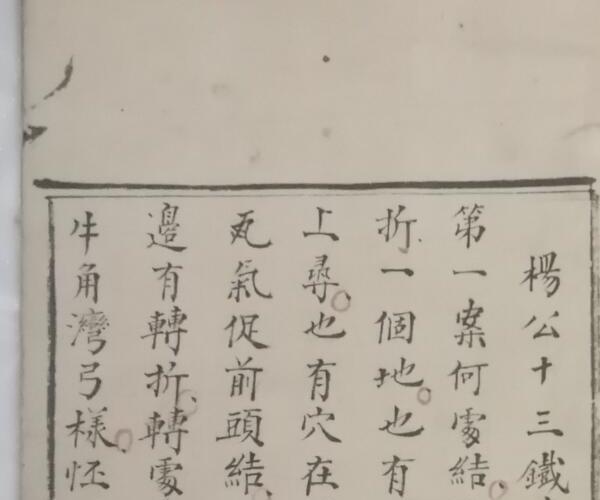 楊公十三鐵
第一案何處結
折一個地也有
上尋也有穴在
氣促前頭結
邊有轉折轉處
牛角灣弓樣怪